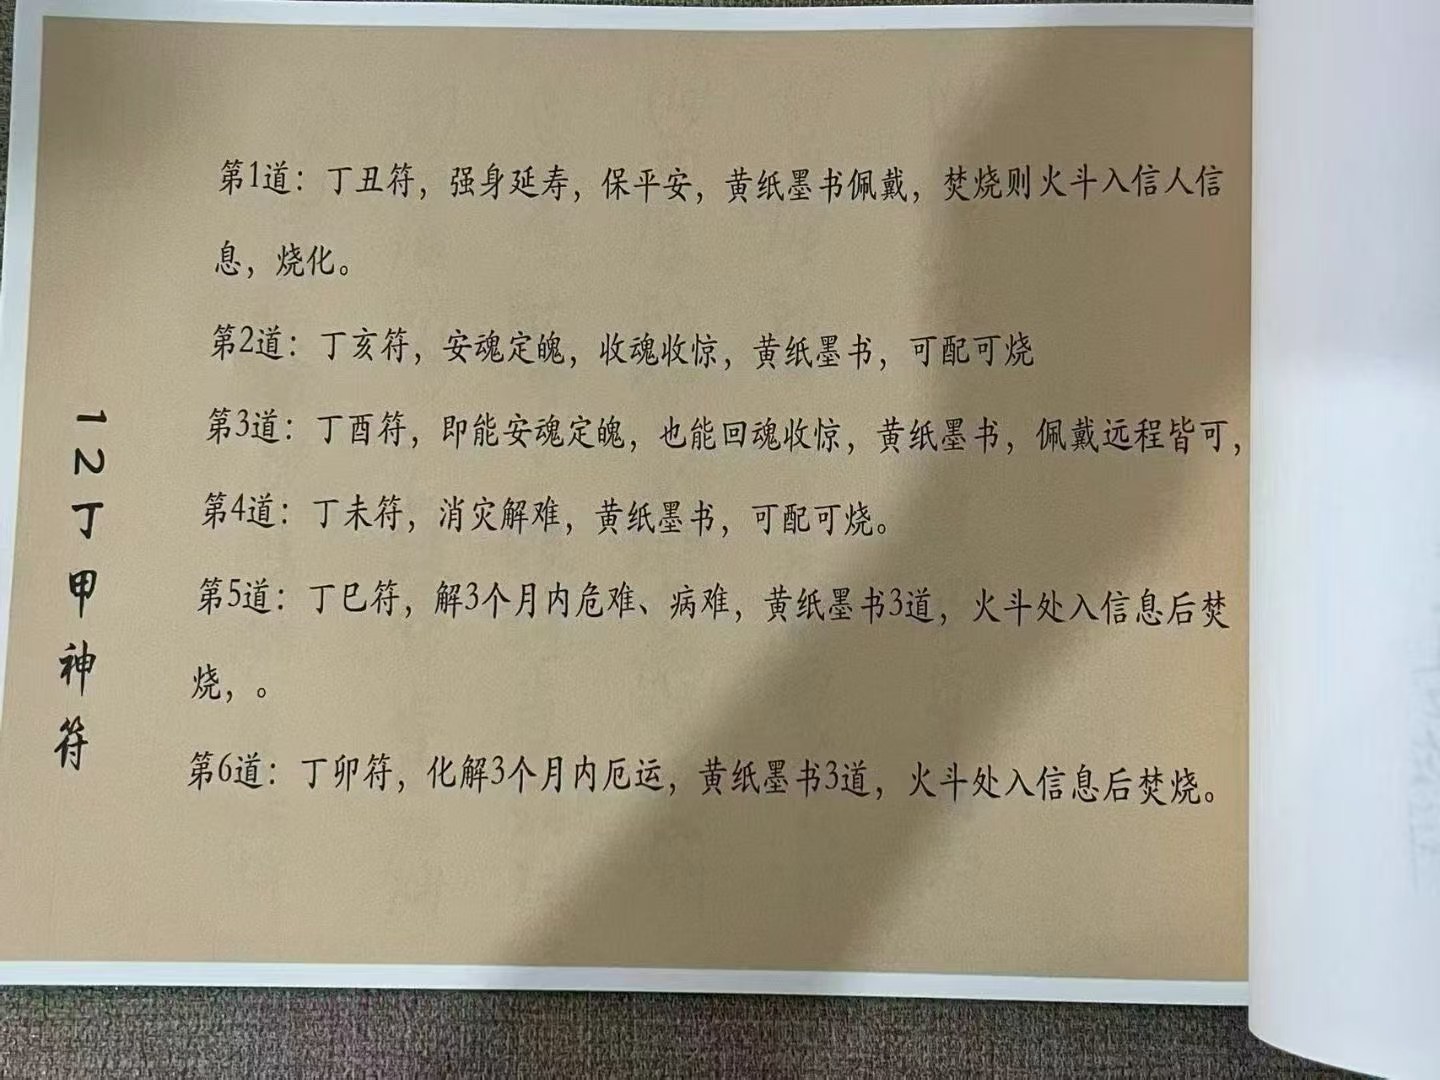 12丁甲神符
第1道：丁丑符，强身延寿，保平安，黄纸墨书佩戴，焚烧则火斗入信人信
息，烧化。
第2道：丁亥符，安魂定魄，收魂收惊，黄纸墨书，可配可烧
第3道：丁酉符，即能安魂定魄，也能回魂收惊，黄纸墨书，佩戴远程皆可，
第4道：丁未符，消灾解难，黄纸墨书，可配可烧。
第5道：丁巳符，解3个月内危难、病难，黄纸墨书3道，火斗处入信息后焚
烧，。
第6道：丁卯符，化解3个月内厄运，黄纸墨书3道，火斗处入信息后焚烧。